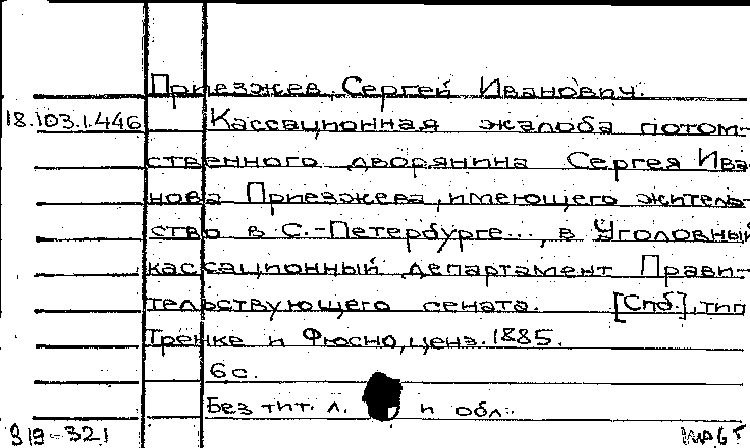 Приезжев, Сергей Иванович.
18.103.1.446 Кассационная жалоба потом-
ственного дворянина Сергея Ива-
нова Приезжева, имеющего житель-
ство в С.-Петербурге..., в Уголовный
кассационный департамент Прави-
тельствующего сената. [Спб.], тип
Тренке и Фюсно, ценз. 1885.
6 с.
Без тит. л. и обл.
319-321